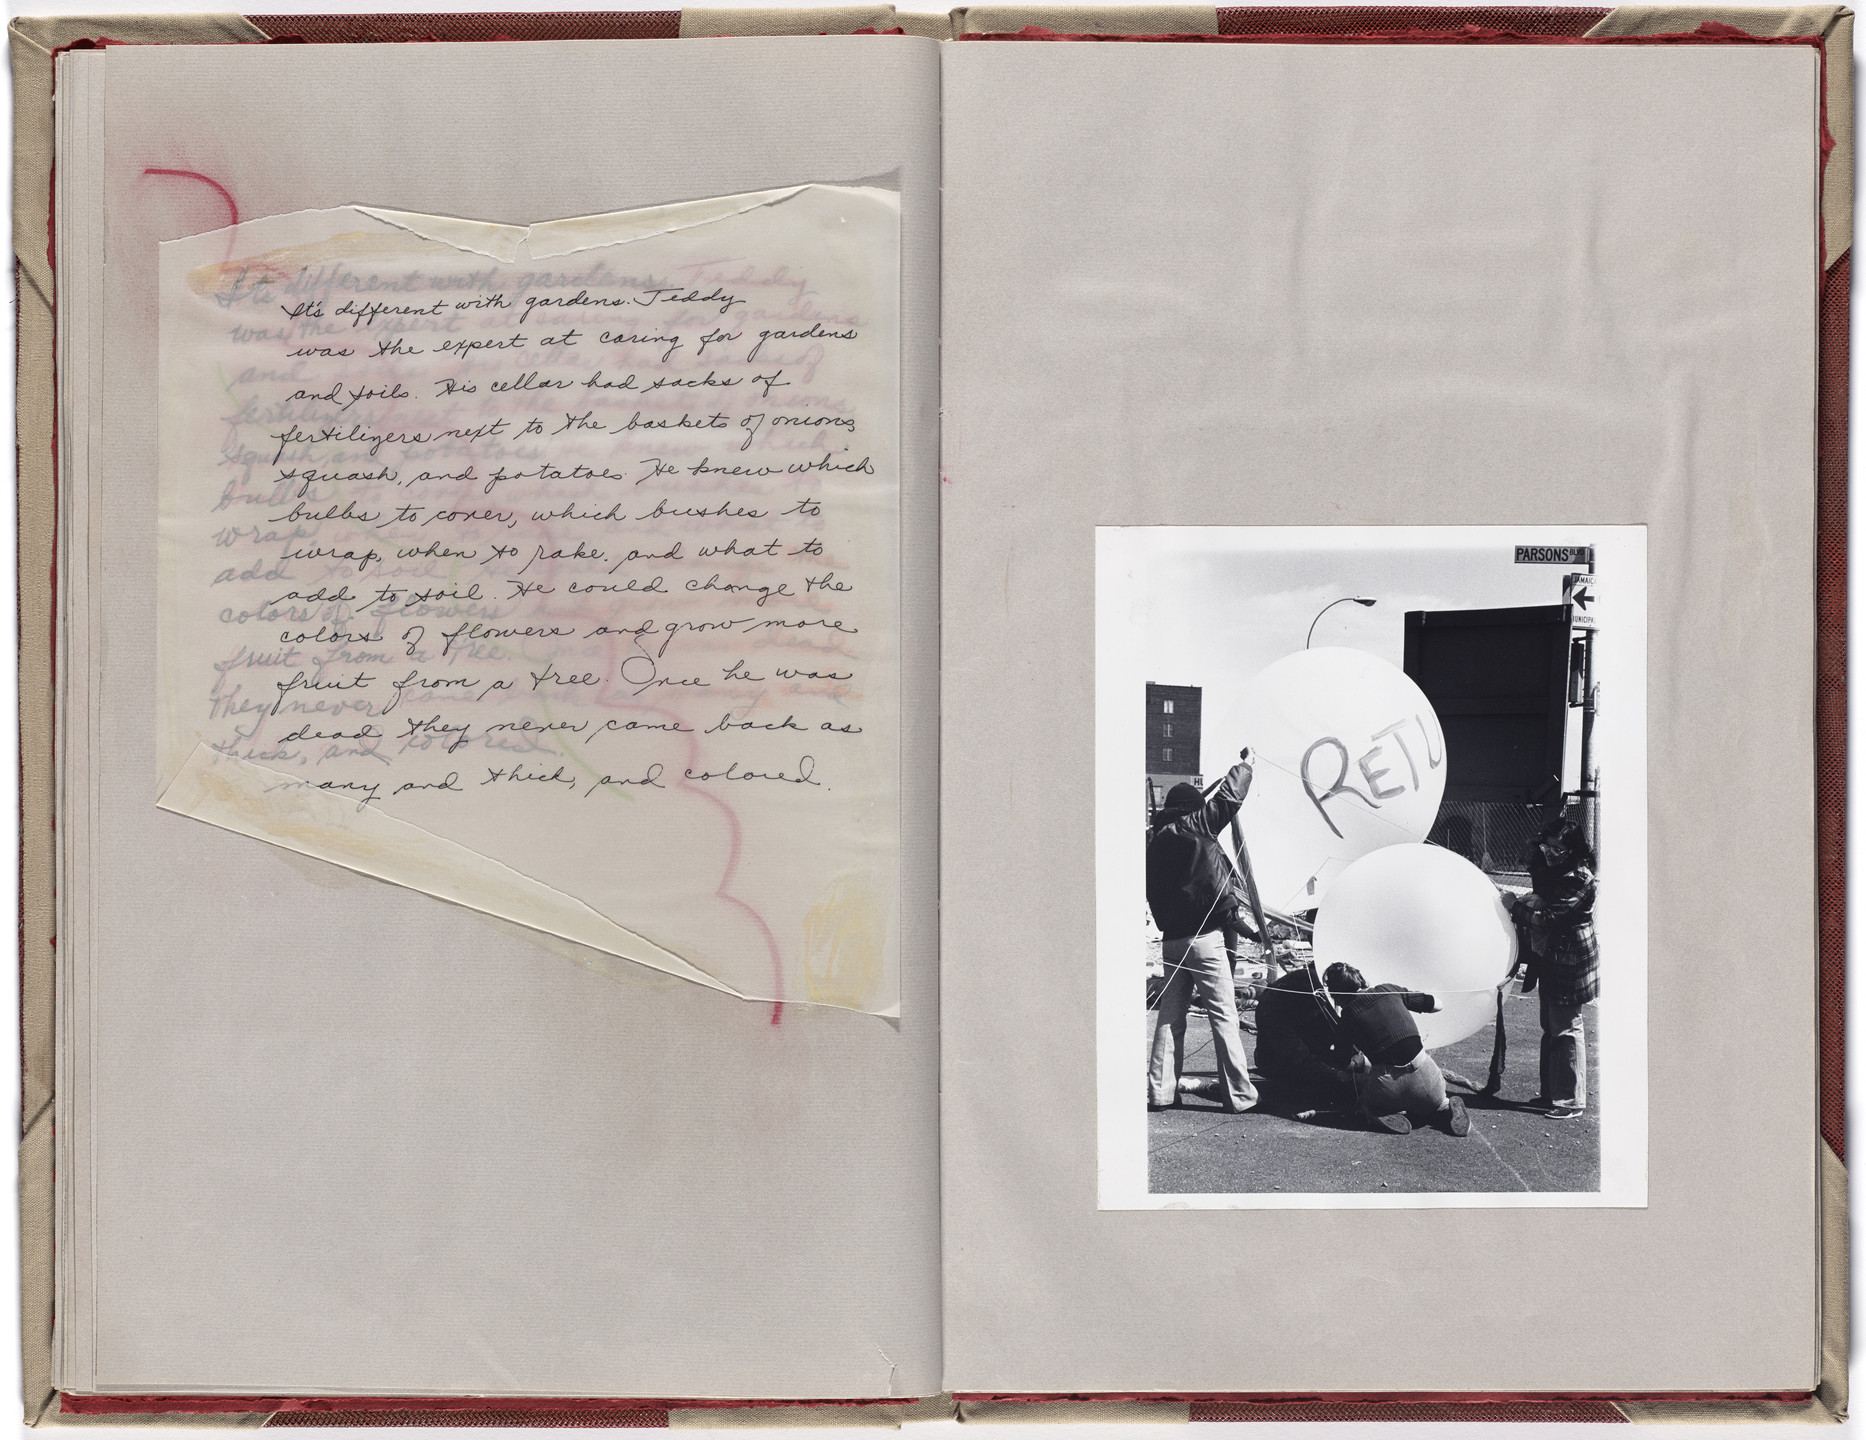 It's different with gardens. Teddy
was the expert at caring for gardens
and soils. His cellar had sacks of
fertilizers next to the baskets of onions,
squash, and potatoes. He knew which
bulbs to cover, which bushes to
wrap, when to rake. and what to
add to soil. He could change the
colors of flowers and grow more
fruit from a tree. Once he was
dead they never came back as
many and thick, and colored.
PARSONS BLVD
JAMAICA
RETU